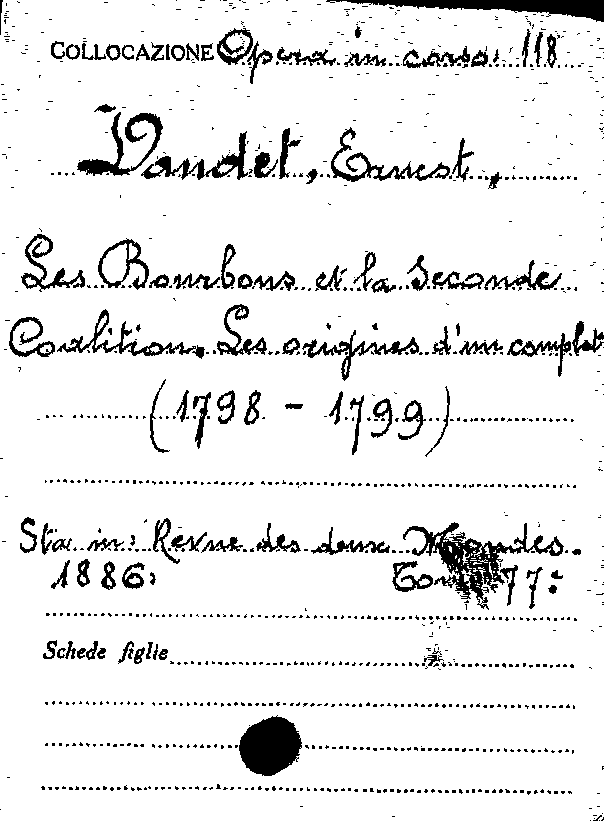 COLLOCAZIONE Opera in corso. 118
Daudet, Ernest,
Les Bourbons et la seconde
Coalition. Les origines d'un complot
(1798 - 1799)
Sta in: Revue des deux Mondes.
1886: Tome 77:
Schede figlie